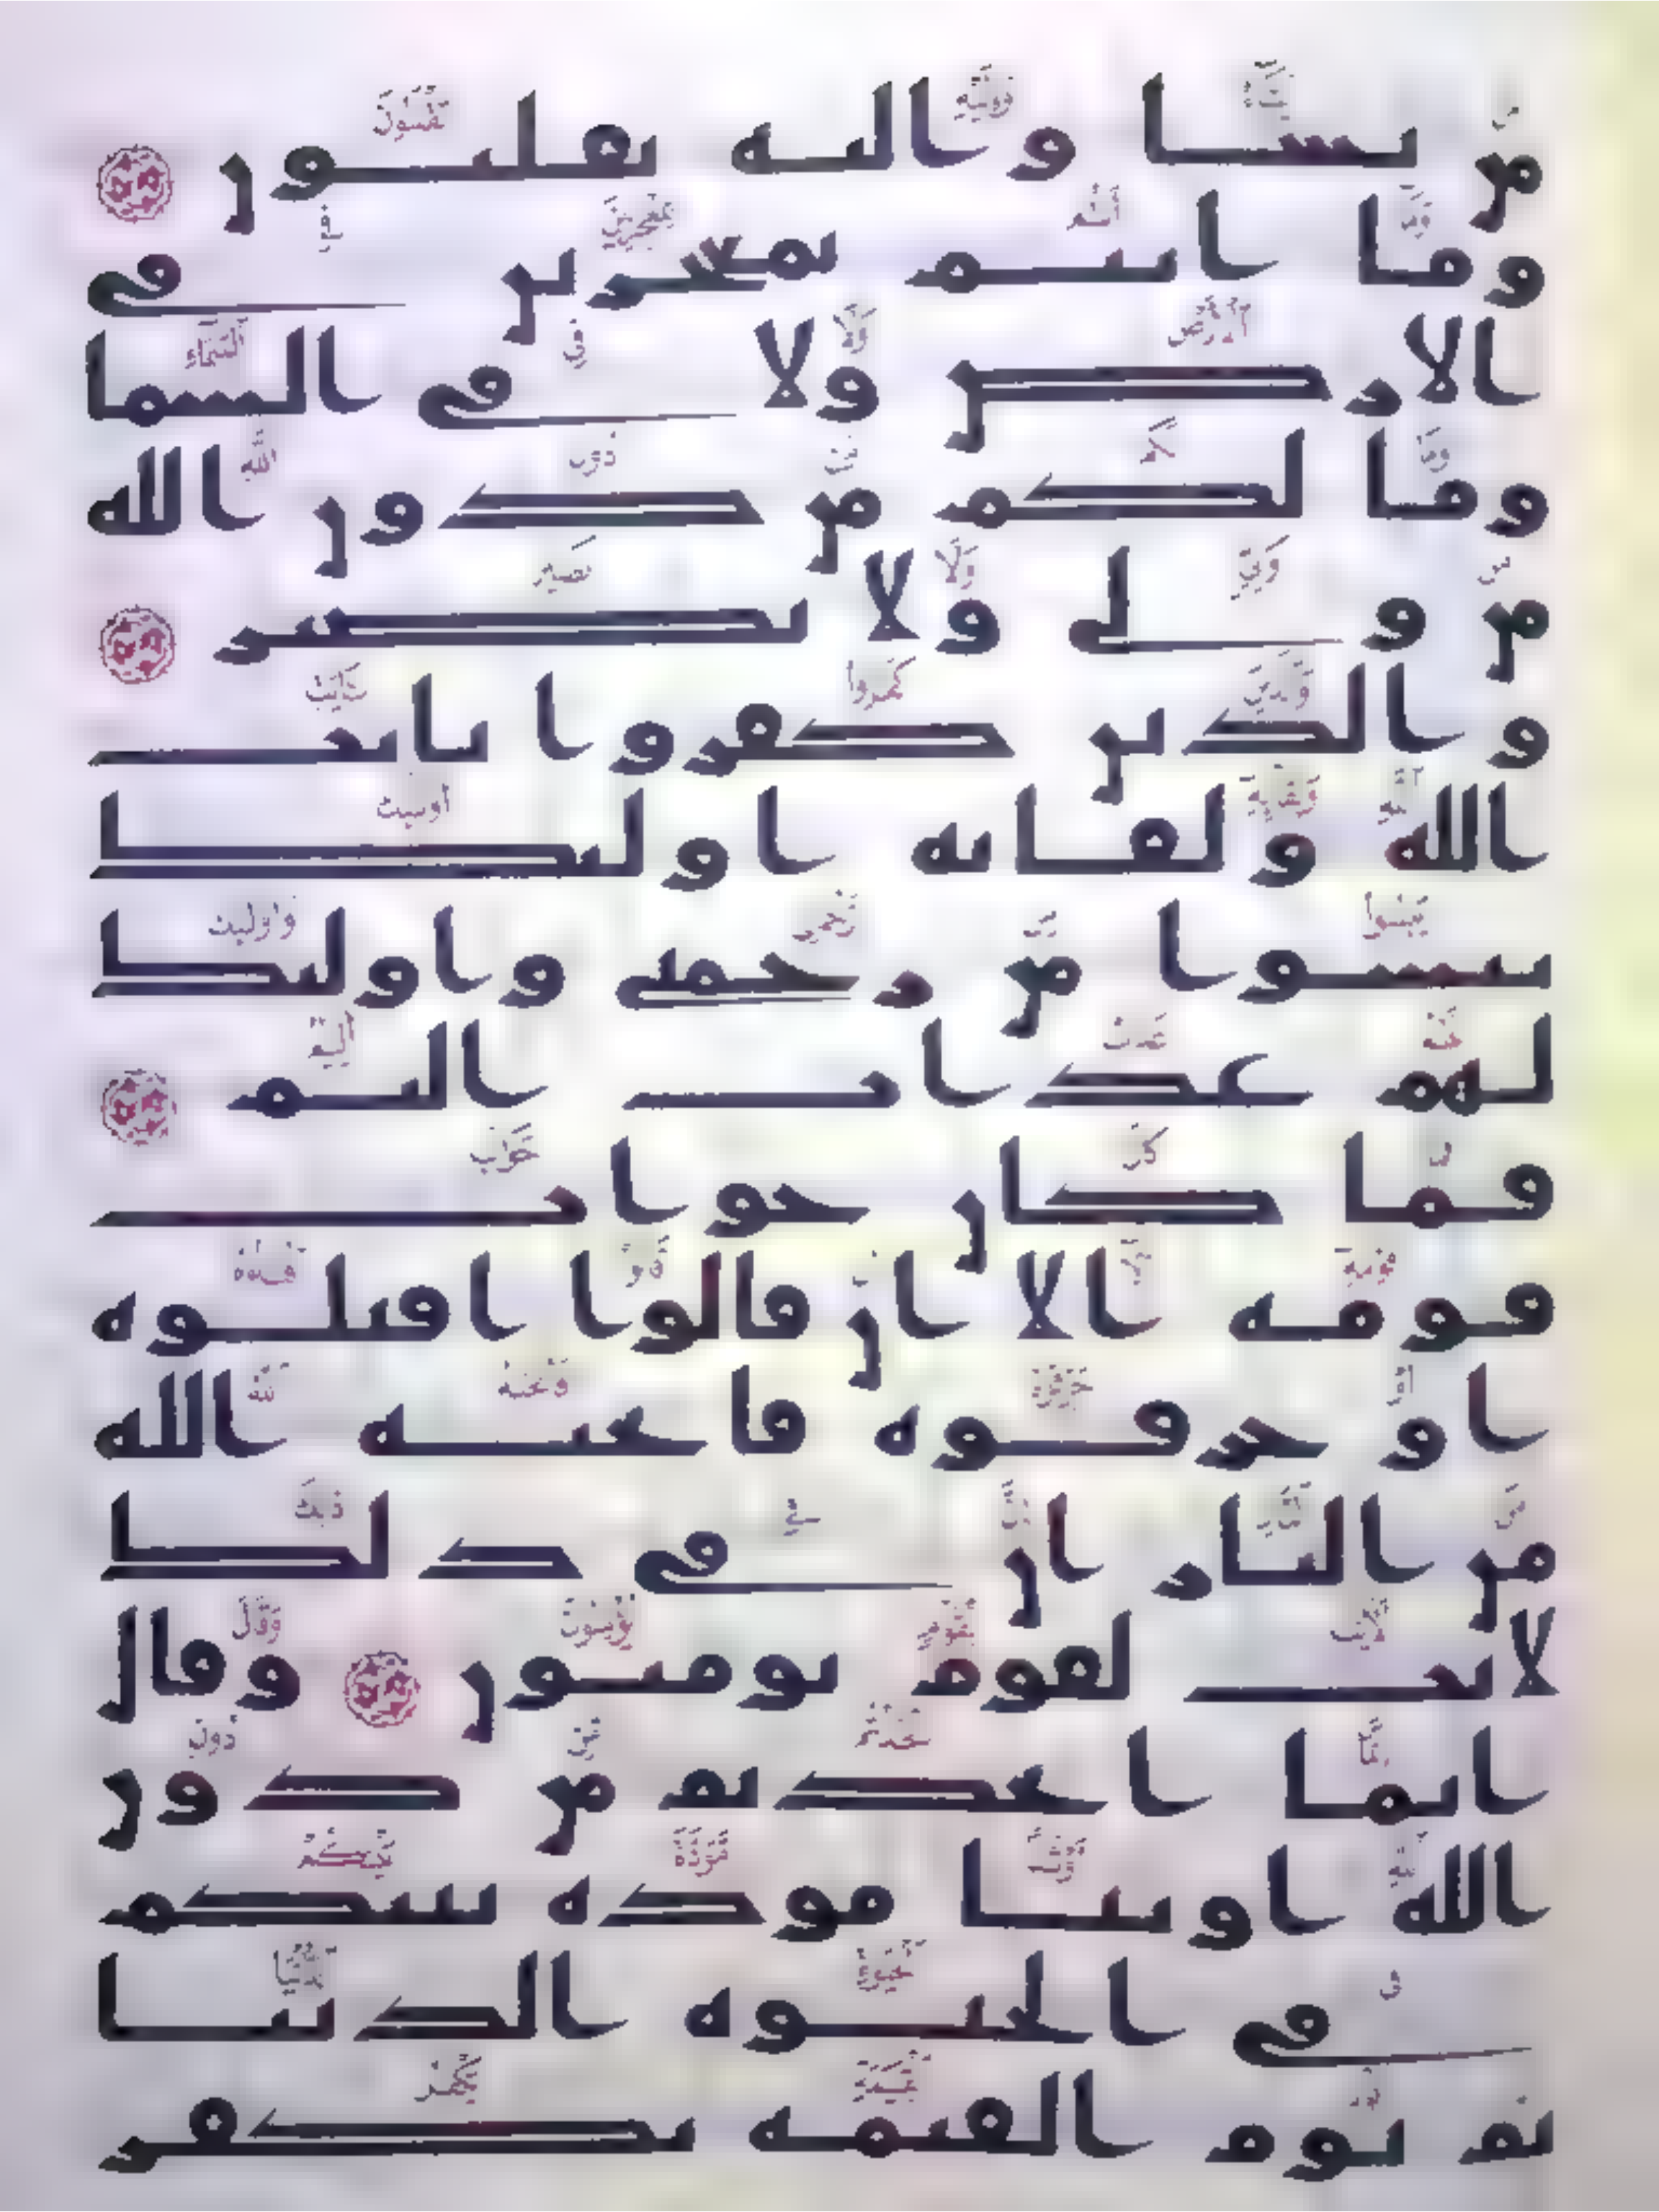 من يشا واليه تقلبون
وما انتم بمعجزين في
الارض ولا في السما
وما لكم من دون الله
من ولي ولا نصير
والذين كفروا بايت
الله ولقايه اوليك
ييسوا من رحمتي واوليك
لهم عذاب اليم
فما كان جواب
قومه الا ان قالوا اقتلوه
او حرقوه فانجيه الله
من النار ان في ذلك
لايت لقوم يومنون وقال
انما اتخذتم من دون
الله اوثنا موده بينكم
في الحيوه الدنيا
ثم يوم القيمه يكفر